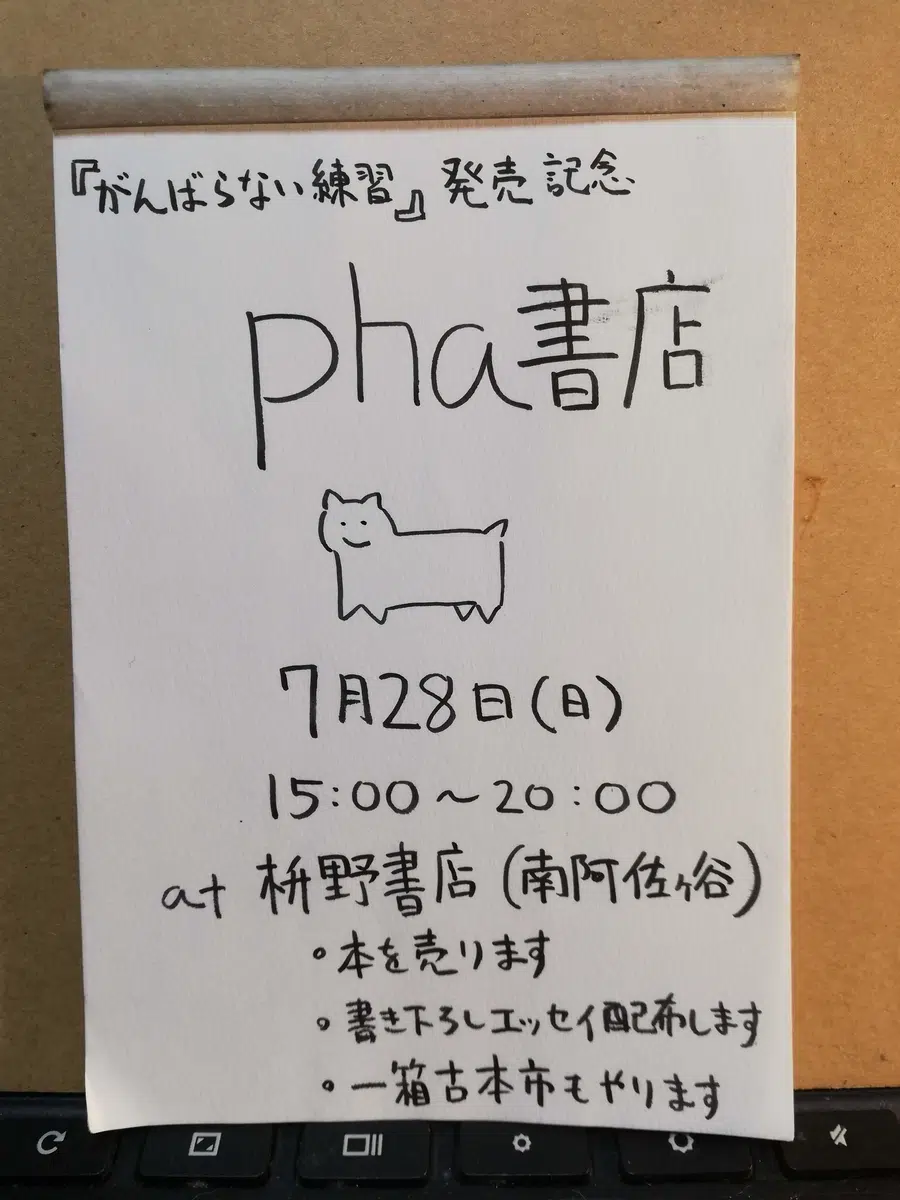 『がんばらない練習』発売記念
pha書店
7月28日(日)
15:00〜20:00
at 枡野書店(南阿佐ヶ谷)
◦本を売ります
◦書き下ろしエッセイ配布します
◦一箱古本市もやります